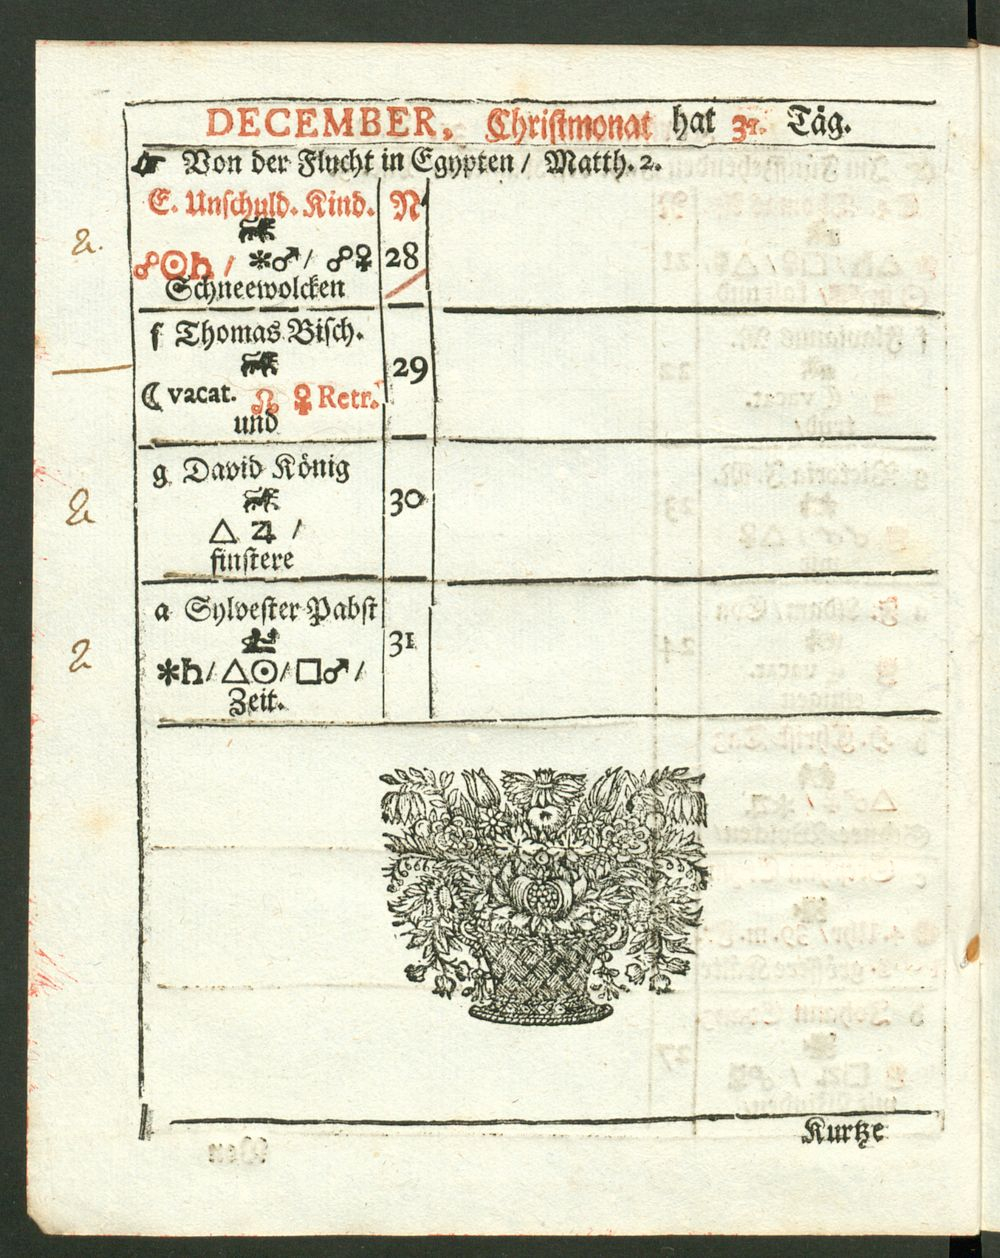 DECEMBER, Christmonat hat 31. Täg.
☞ Von der Flucht in Egypten / Matth. 2.
E. Unschuld. Kind. N
☍☉♄ / ⚹♂ / ☍♀ 28
Schneewolcken
f Thomas Bisch.
29
☾ vacat. ☊ ♀ Retr.
und
g David König
30
△ ♃ /
finstere
a Sylvester Pabst
31
⚹♄ / △☉ / □♂ /
Zeit.
Kurtze